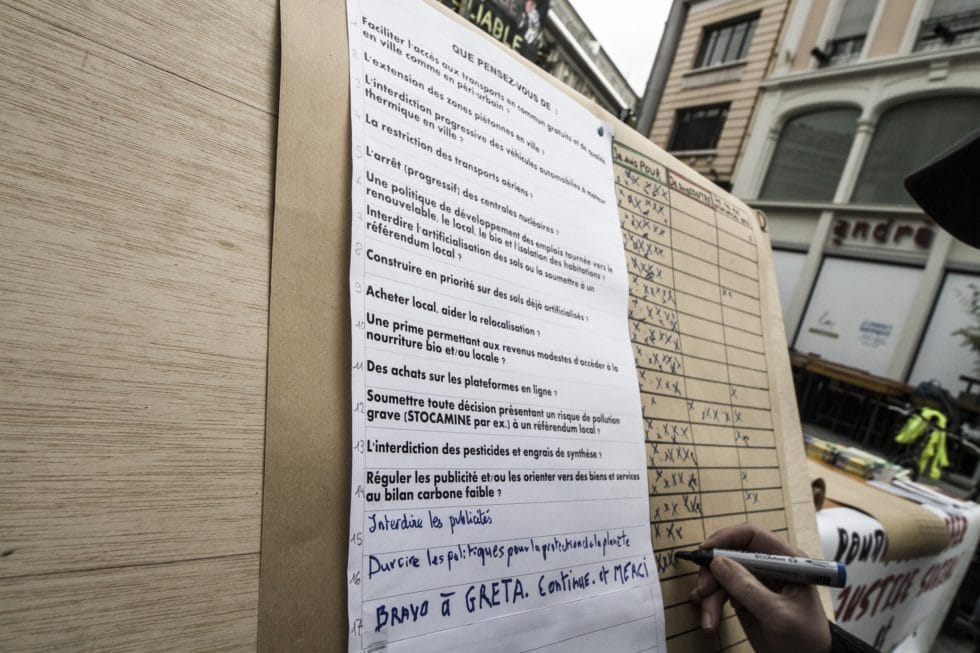 LIABLE
QUE PENSEZ-VOUS DE :
1 Faciliter l'accès aux transports en commun gratuits et de qualité
en ville comme en péri-urbain ?
2 L'extension des zones piétonnes en ville ?
3 L'interdiction progressive des véhicules automobiles à moteur
thermique en ville ?
4 La restriction des transports aériens ?
5 L'arrêt (progressif) des centrales nucléaires ?
6 Une politique de développement des emplois tournée vers le
renouvelable, le local, le bio et l'isolation des habitations ?
7 Interdire l'artificialisation des sols ou la soumettre à un
référendum local ?
8 Construire en priorité sur des sols déjà artificialisés ?
9 Acheter local, aider la relocalisation ?
10 Une prime permettant aux revenus modestes d'accéder à la
nourriture bio et/ou locale ?
11 Des achats sur les plateformes en ligne ?
12 Soumettre toute décision présentant un risque de pollution
grave (STOCAMINE par ex.) à un référendum local ?
13 L'interdiction des pesticides et engrais de synthèse ?
14 Réguler les publicité et/ou les orienter vers des biens et services
au bilan carbone faible ?
Interdire les publicités
15
Durcire les politiques pour la protection de la planète
16
BRAVO à GRETA. Continue. et MERCI
17
Je suis POUR
andré
JUSTICE SOCIALE
et